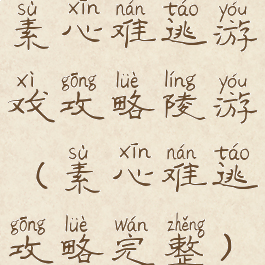 sù xīn nán táo yóu
素心难逃游
xì gōng lüè líng yóu
戏攻略陵游
sù xīn nán táo
（素心难逃
gōng lüè wán zhěng
攻略完整）